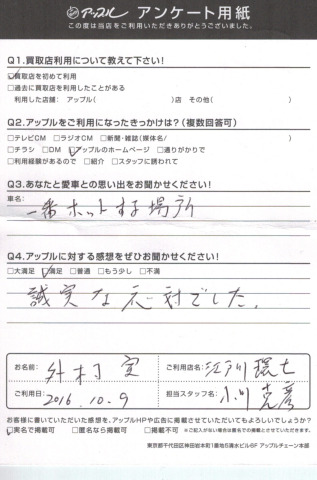 アップル アンケート用紙
この度は当店をご利用いただきありがとうございました。
Q1.買取店利用について教えて下さい!
☑買取店を初めて利用
□過去に買取店を利用したことがある
利用した店舗: アップル( )店 その他( )
Q2.アップルをご利用になったきっかけは?(複数回答可)
□テレビCM □ラジオCM □新聞・雑誌(媒体名/ )
□チラシ □DM ☑アップルのホームページ □通りがかりで
□利用経験があるので □紹介 □スタッフに誘われて
Q3.あなたと愛車との思い出をお聞かせください!
車名:
一番ホットする場所
Q4.アップルに対する感想をぜひお聞かせください!
□大満足 ☑満足 □普通 □もう少し □不満
誠実な応対でした。
お名前: 外村 実
ご利用店名: 江戸川環七
ご利用日: 2016.10.9
担当スタッフ名: 小川克彦
お客様に書いていただいた感想を、アップルHPや広告に掲載させていただいてもよろしいでしょうか?
☑実名で掲載可 □匿名なら掲載可 □掲載不可 ※ご記入がない場合は匿名での掲載とさせていただきます。
東京都千代田区神田岩本町1番地5清水ビル6F アップルチェーン本部